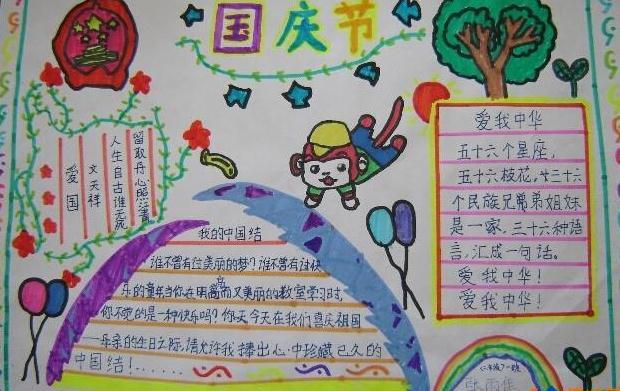 国庆节
爱国
文天祥
人生自古谁无死
留取丹心照汗青
我的中国结
谁不曾有过美丽的梦？谁不曾有过快
乐的童年当你在明亮而又美丽的教室学习时，
你不觉的是一种快乐吗？你天今天在我们喜庆祖国
——母亲的生日之际，请允许我捧出心中珍藏已久的
中国结！……
爱我中华
五十六个星座，
五十六枝花，廿三十六
个民族兄弟姐妹
是一家，三十六种语
言，汇成一句话。
爱我中华！
爱我中华！